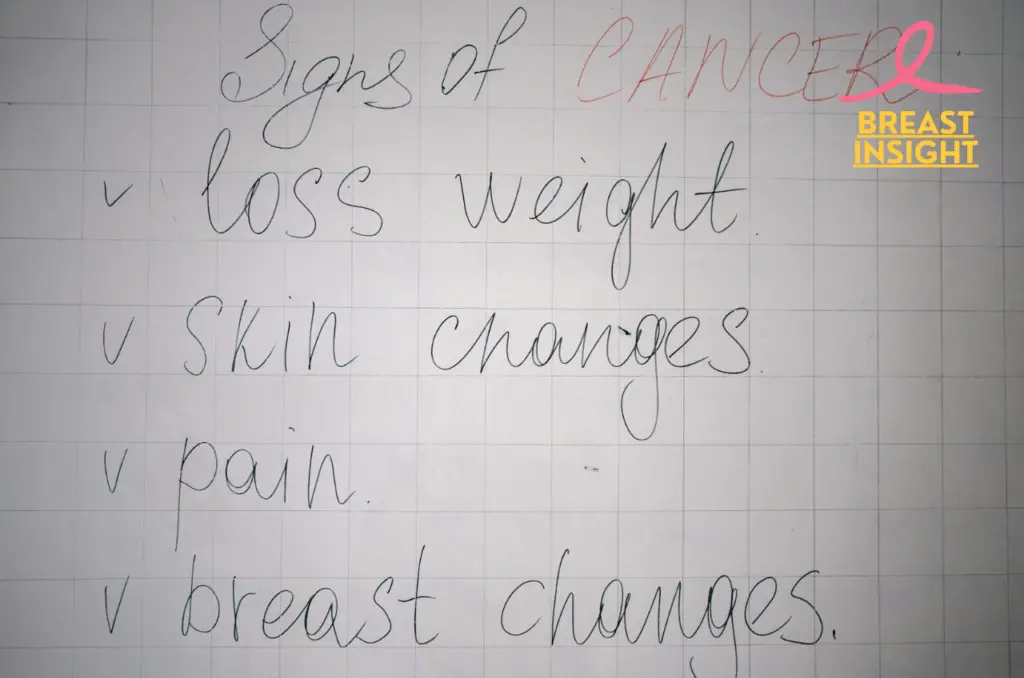 Signs of CANCER.
BREAST
INSIGHT
v loss weight.
v skin changes.
v pain.
v breast changes.